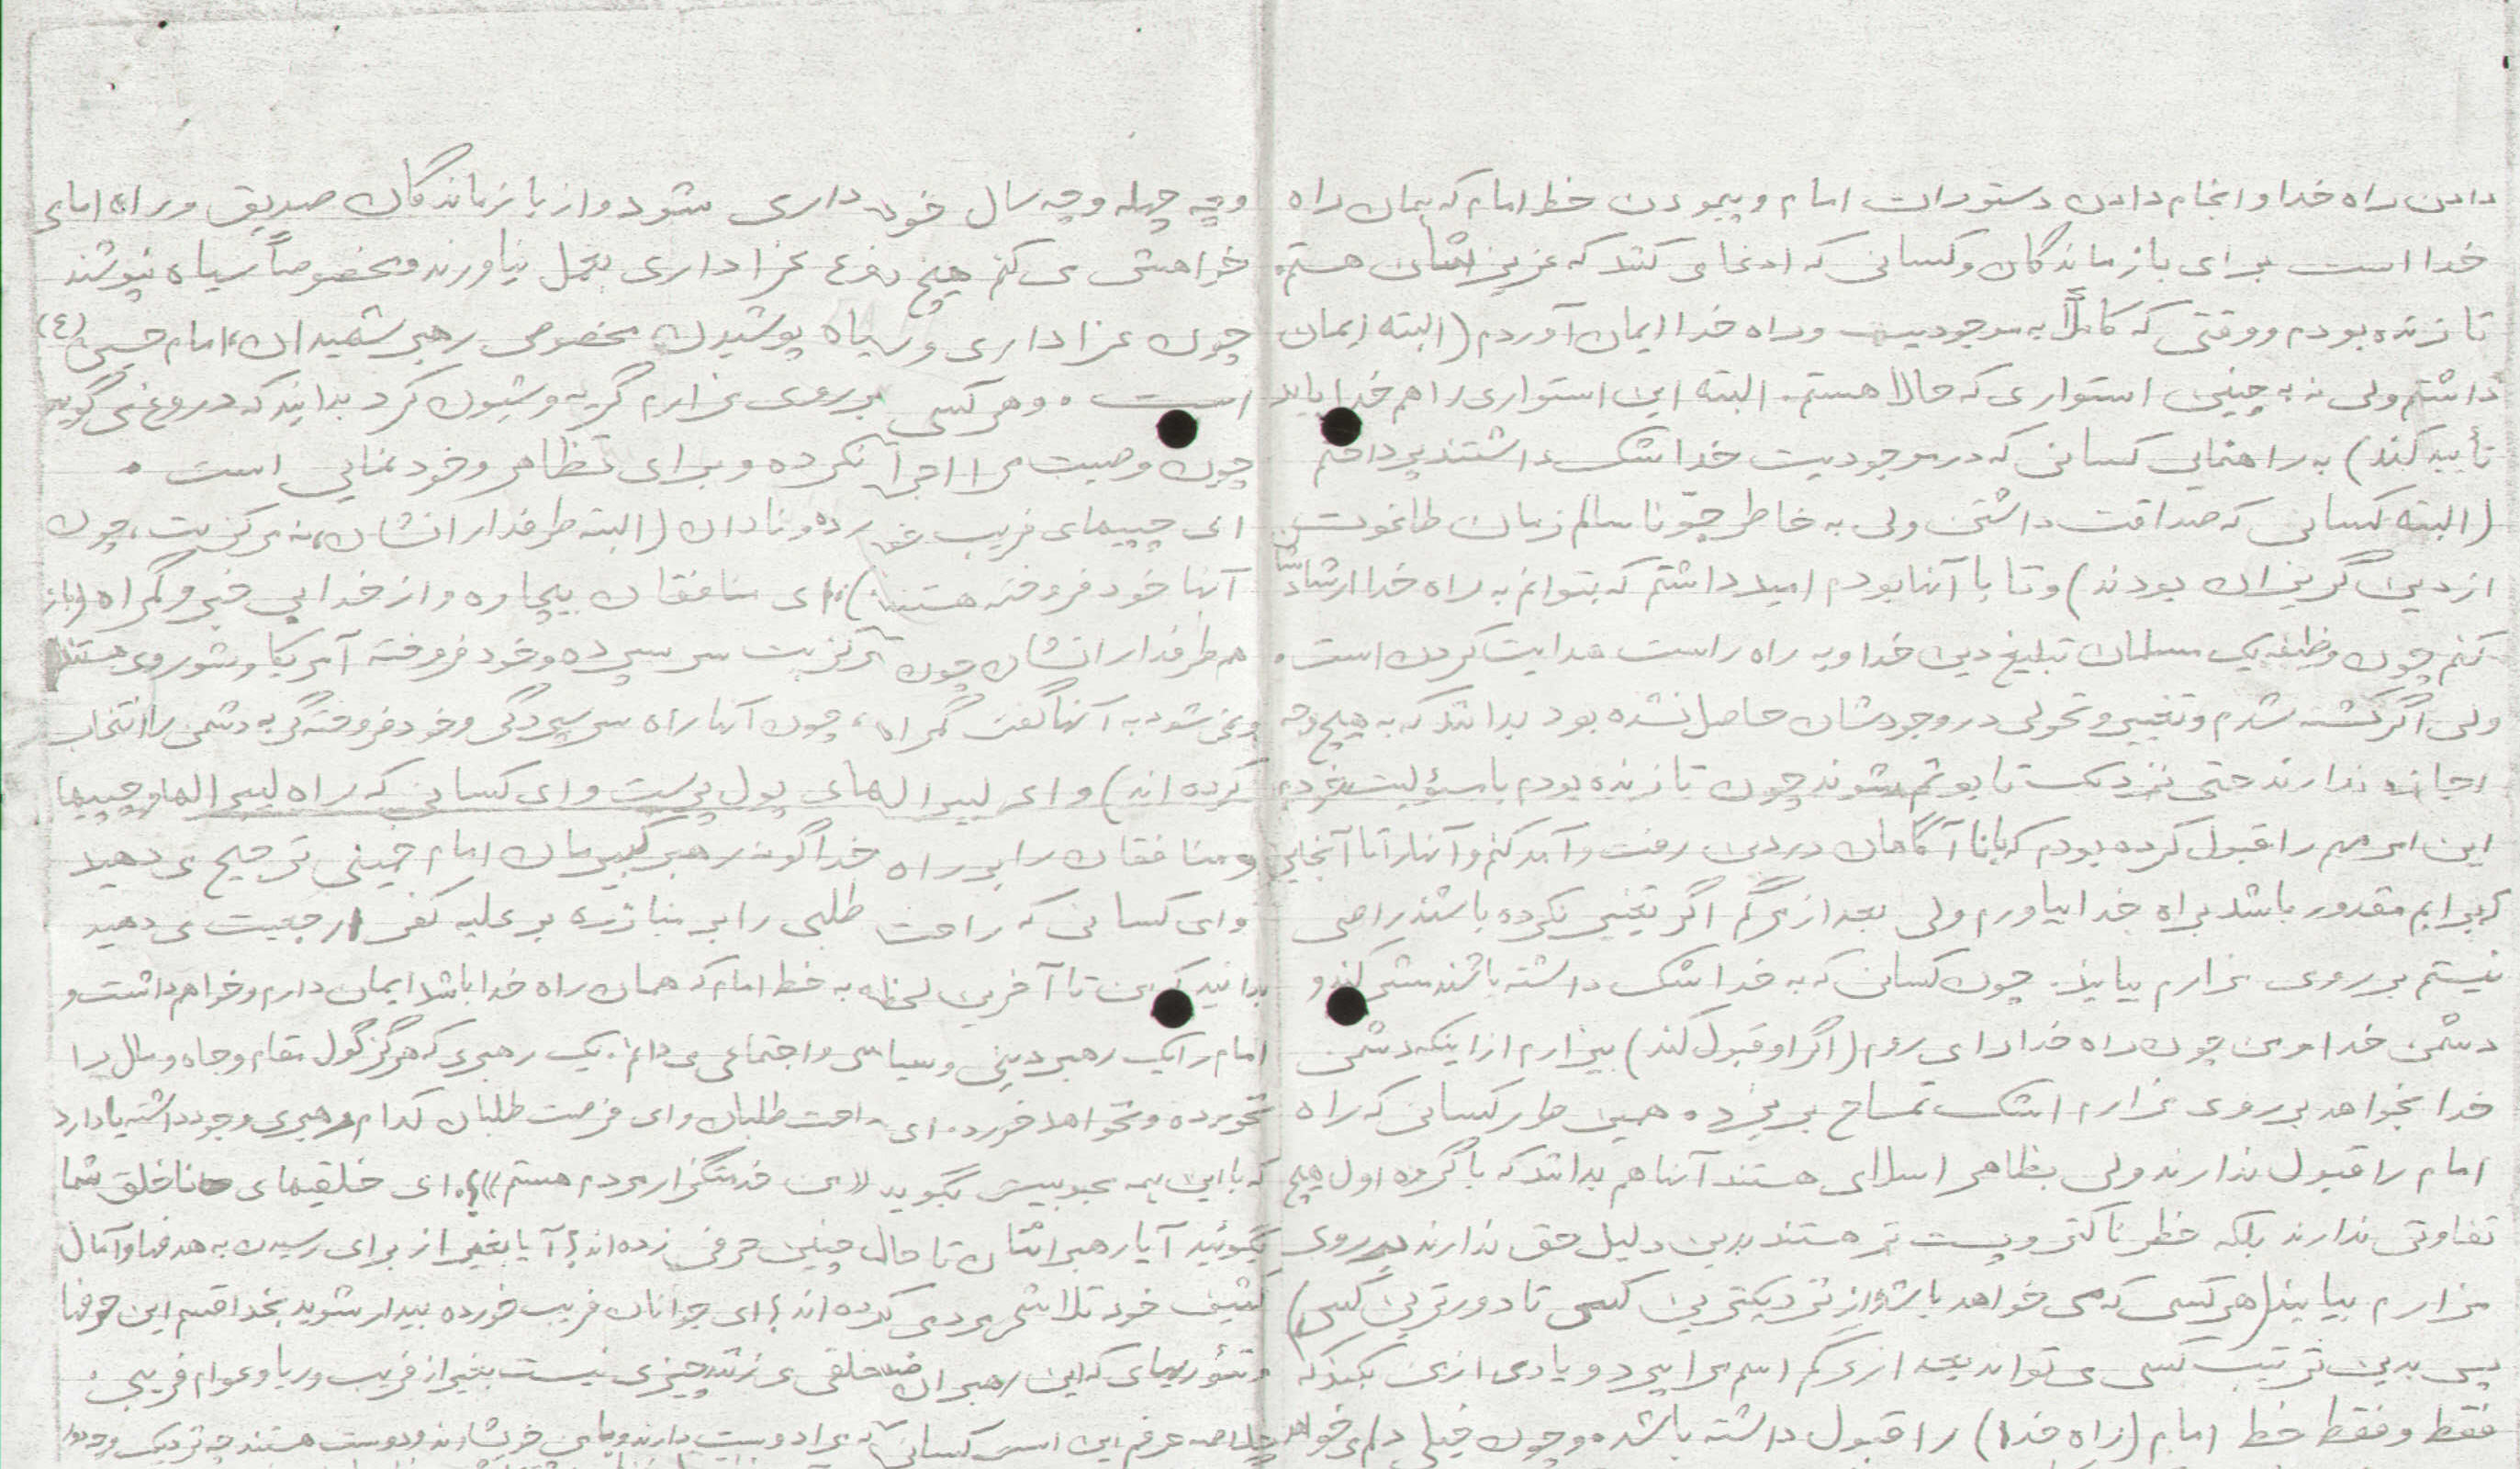 دادن راه خدا و انجام دادن دستورات امام و پیمودن خط امام که همان راه
خدا است برای بازماندگان و کسانی که ادعا می کنند که عزیزاشان هستم.
تا زنده بودم و وقتی که کاملاً به موجودیت و راه خدا ایمان آوردم (البته ایمان
داشتم ولی نه به چنین استواری که حالا هستم. البته این استواری را هم خدا باید
تأیید کند) به راهنمایی کسانی که در موجودیت خدا شک داشتند پرداختم
(البته کسانی که صداقت داشتن ولی به خاطر جوّ ناسالم زمان طاغوت
از دین گریزان بودند) و تا با آنها بودم امید داشتم که بتوانم به راه خدا ارشاد
کنم چون وظیفه یک مسلمان تبلیغ دین خدا و به راه راست هدایت کردن است.
ولی اگر کشته شدم و تغییر و تحولی در وجودشان حاصل نشده بود بدانند که به هیچ وجه
اجازه ندارند حتی نزدیک تابوتم شوند چون تا زنده بودم با مسؤلیت خودم
این امر مهم را قبول کرده بودم که با ناآگاهان در دین رفت و آمد کنم و آنها را تا آنجایی
که برایم مقدور باشد براه خدا بیاورم ولی بعد از مرگم اگر تغییر نکرده باشند راضی
نیستم بر روی مزارم بیایند. چون کسانی که به خدا شک داشته باشند مشرکند و
دشمن خدا و من چون راه خدا را می روم (اگر او قبول کند) بیزارم از اینکه دشمن
خدا بخواهد بر روی مزارم اشک تمساح بریزد. همین طور کسانی که راه
امام را قبول ندارند ولی بظاهر اسلامی هستند آنها هم بدانند که با گروه اول هیچ
تفاوتی ندارند بلکه خطرناکتر و پست تر هستند بدین دلیل حق ندارند بر روی
مزارم بیایند (هر کسی که می خواهد باشد از نزدیکترین کسی تا دورترین کسی)
پس بدین ترتیب کسی می تواند بعد از مرگم اسم مرا ببرد و یادی از من بکند که
فقط و فقط خط امام (راه خدا) را قبول داشته باشد. و چون خیلی دلم می خواهد
و چه چهله و چه سال خودداری شود و از بازماندگان صدیق و راه امامی
خواهش می کنم هیچ نوع عزاداری بعمل نیاورند و مخصوصاً سیاه نپوشند
چون عزاداری و سیاه پوشیدن مخصوص رهبر شهیدان، امام حسین (ع)
است. و هر کسی بر روی مزارم گریه و شیون کرد بدانید که دروغ می گوید
چون وصیت مرا اجرا نکرده و برای تظاهر و خودنمایی است.
ای چپیهای فریب خورده و نادان (البته طرفدارانشان، نه مرکزیت، چون
آنها خود فروخته هستند)، ای منافقان بیچاره و از خدا بی خبر و گمراه (باز
هم طرفدارانشان چون مرکزیت سر سپرده و خود فروخته آمریکا و شوروی هستند
و نمی شود به آنها گفت گمراه، چون آنها راه سر سپردگی و خود فروختگی به دشمن را انتخاب
کرده اند) و ای لیبرالهای پول پرست و ای کسانی که راه لیبرالها و چپیها
و منافقان را بر راه خداگونه رهبر کبیرمان امام خمینی ترجیح می دهید
و ای کسانی که راحت طلبی را بر مبارزه بر علیه کفر ارجعیت می دهید
بدانید که من تا آخرین لحظه به خط امام که همان راه خدا باشد ایمان دارم و خواهم داشت و
امام را یک رهبر دینی و سیاسی و اجتماعی می دانم. یک رهبری که هرگز گول مقام و جاه و مال را
نخورده و نخواهد خورد. ای راحت طلبان و ای فرصت طلبان کدام رهبری وجود داشته یا دارد
که با این همه محبوبیتش بگوید «من خدمتگزار مردم هستم»؟ ای خلقیهای ناخلق شما
بگوئید آیا رهبرانتان تا حال چنین حرفی زده اند؟ آیا بغیر از برای رسیدن به هدفها و آمال
کثیف خود تلاش مردمی کرده اند؟ ای جوانان فریب خورده بیدار شوید بخدا قسم این حرفها
و تئوریهای که این رهبران ضد خلقی می زنند چیزی نیست بغیر از فریب و ریا و عوام فریبی.
خلاصه حرفم این است کسانی که مرا دوست دارند و با من خویشاوند و دوست هستند چه نزدیک و چه دور